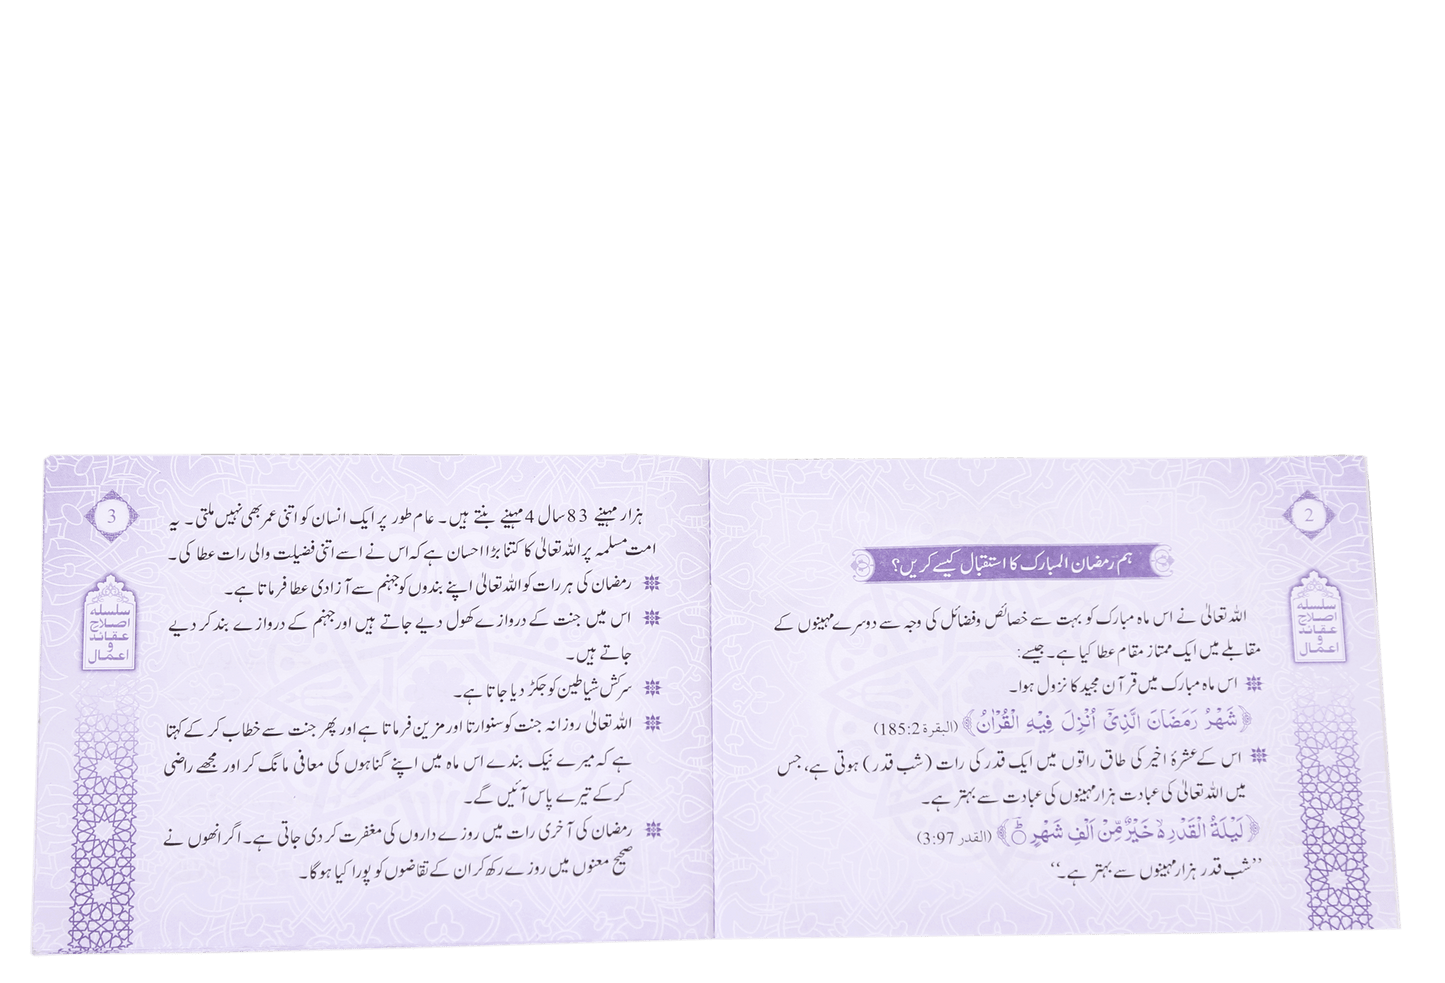 2
سلسلہ
اصلاح
عقائد
و
اعمال
ہم رمضان المبارک کا استقبال کیسے کریں؟
اللہ تعالیٰ نے اس ماہ مبارک کو بہت سے خصائص وفضائل کی وجہ سے دوسرے مہینوں کے
مقابلے میں ایک ممتاز مقام عطا کیا ہے۔ جیسے:
اس ماہ مبارک میں قرآن مجید کا نزول ہوا۔
﴿شَهْرُ رَمَضَانَ الَّذِيْٓ اُنْزِلَ فِيْهِ الْقُرْاٰنُ﴾ (البقرة 185:2)
اس کے عشرۂ اخیر کی طاق راتوں میں ایک قدر کی رات (شب قدر) ہوتی ہے، جس
میں اللہ تعالیٰ کی عبادت ہزار مہینوں کی عبادت سے بہتر ہے۔
﴿لَيْلَةُ الْقَدْرِ ۙ خَيْرٌ مِّنْ اَلْفِ شَهْرٍ ؕ﴾ (القدر 3:97)
”شب قدر ہزار مہینوں سے بہتر ہے۔“
3
سلسلہ
اصلاح
عقائد
و
اعمال
ہزار مہینے 83 سال 4 مہینے بنتے ہیں۔ عام طور پر ایک انسان کو اتنی عمر بھی نہیں ملتی۔ یہ
امت مسلمہ پر اللہ تعالیٰ کا کتنا بڑا احسان ہے کہ اس نے اسے اتنی فضیلت والی رات عطا کی۔
رمضان کی ہر رات کو اللہ تعالیٰ اپنے بندوں کو جہنم سے آزادی عطا فرماتا ہے۔
اس میں جنت کے دروازے کھول دیے جاتے ہیں اور جہنم کے دروازے بند کر دیے
جاتے ہیں۔
سرکش شیاطین کو جکڑ دیا جاتا ہے۔
اللہ تعالیٰ روزانہ جنت کو سنوارتا اور مزین فرماتا ہے اور پھر جنت سے خطاب کر کے کہتا
ہے کہ میرے نیک بندے اس ماہ میں اپنے گناہوں کی معافی مانگ کر اور مجھے راضی
کر کے تیرے پاس آئیں گے۔
رمضان کی آخری رات میں روزے داروں کی مغفرت کر دی جاتی ہے۔ اگر انھوں نے
صحیح معنوں میں روزے رکھ کر ان کے تقاضوں کو پورا کیا ہو گا۔